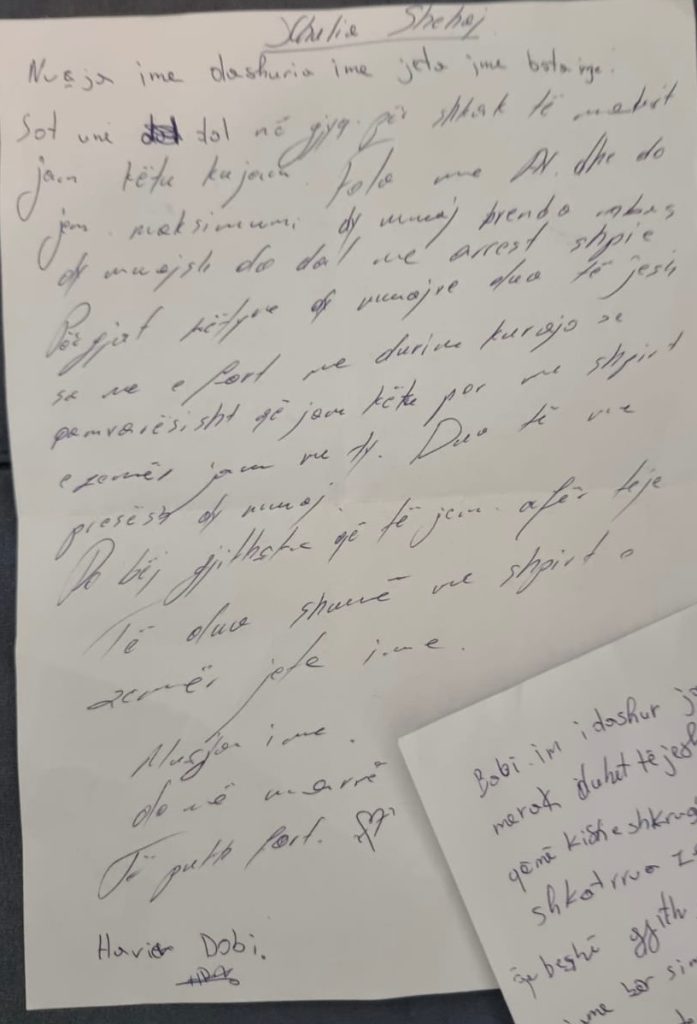 Xhulia Shehaj
Nusja ime dashuria ime jeta ime bota ime.
Sot unë dol në gjyq. për shkak të
jam këtu kujam. fola me Av. dhe do
jem maksimumi dy muaj brenda mbas
dy muajsh do dal me arrest shpie
Përgjat këtyre dy muajve dua të jesh
sa me e fort me durim kurajo se
pamvarësisht që jam këtu por me shpirt
e zemër jam me ty. Dua të me
presësh dy muaj.
Do bëj gjithshka që të jem afër teje
Të dua shumë me shpirt e
zemër jeta ime.
Nusja ime.
do në marrë
Të puth fort.
Dobi.
Bobi im i dashur
merak duhet të jesh
që më kishe shkrua
shkatrrua
që beshë gjith
ime bër